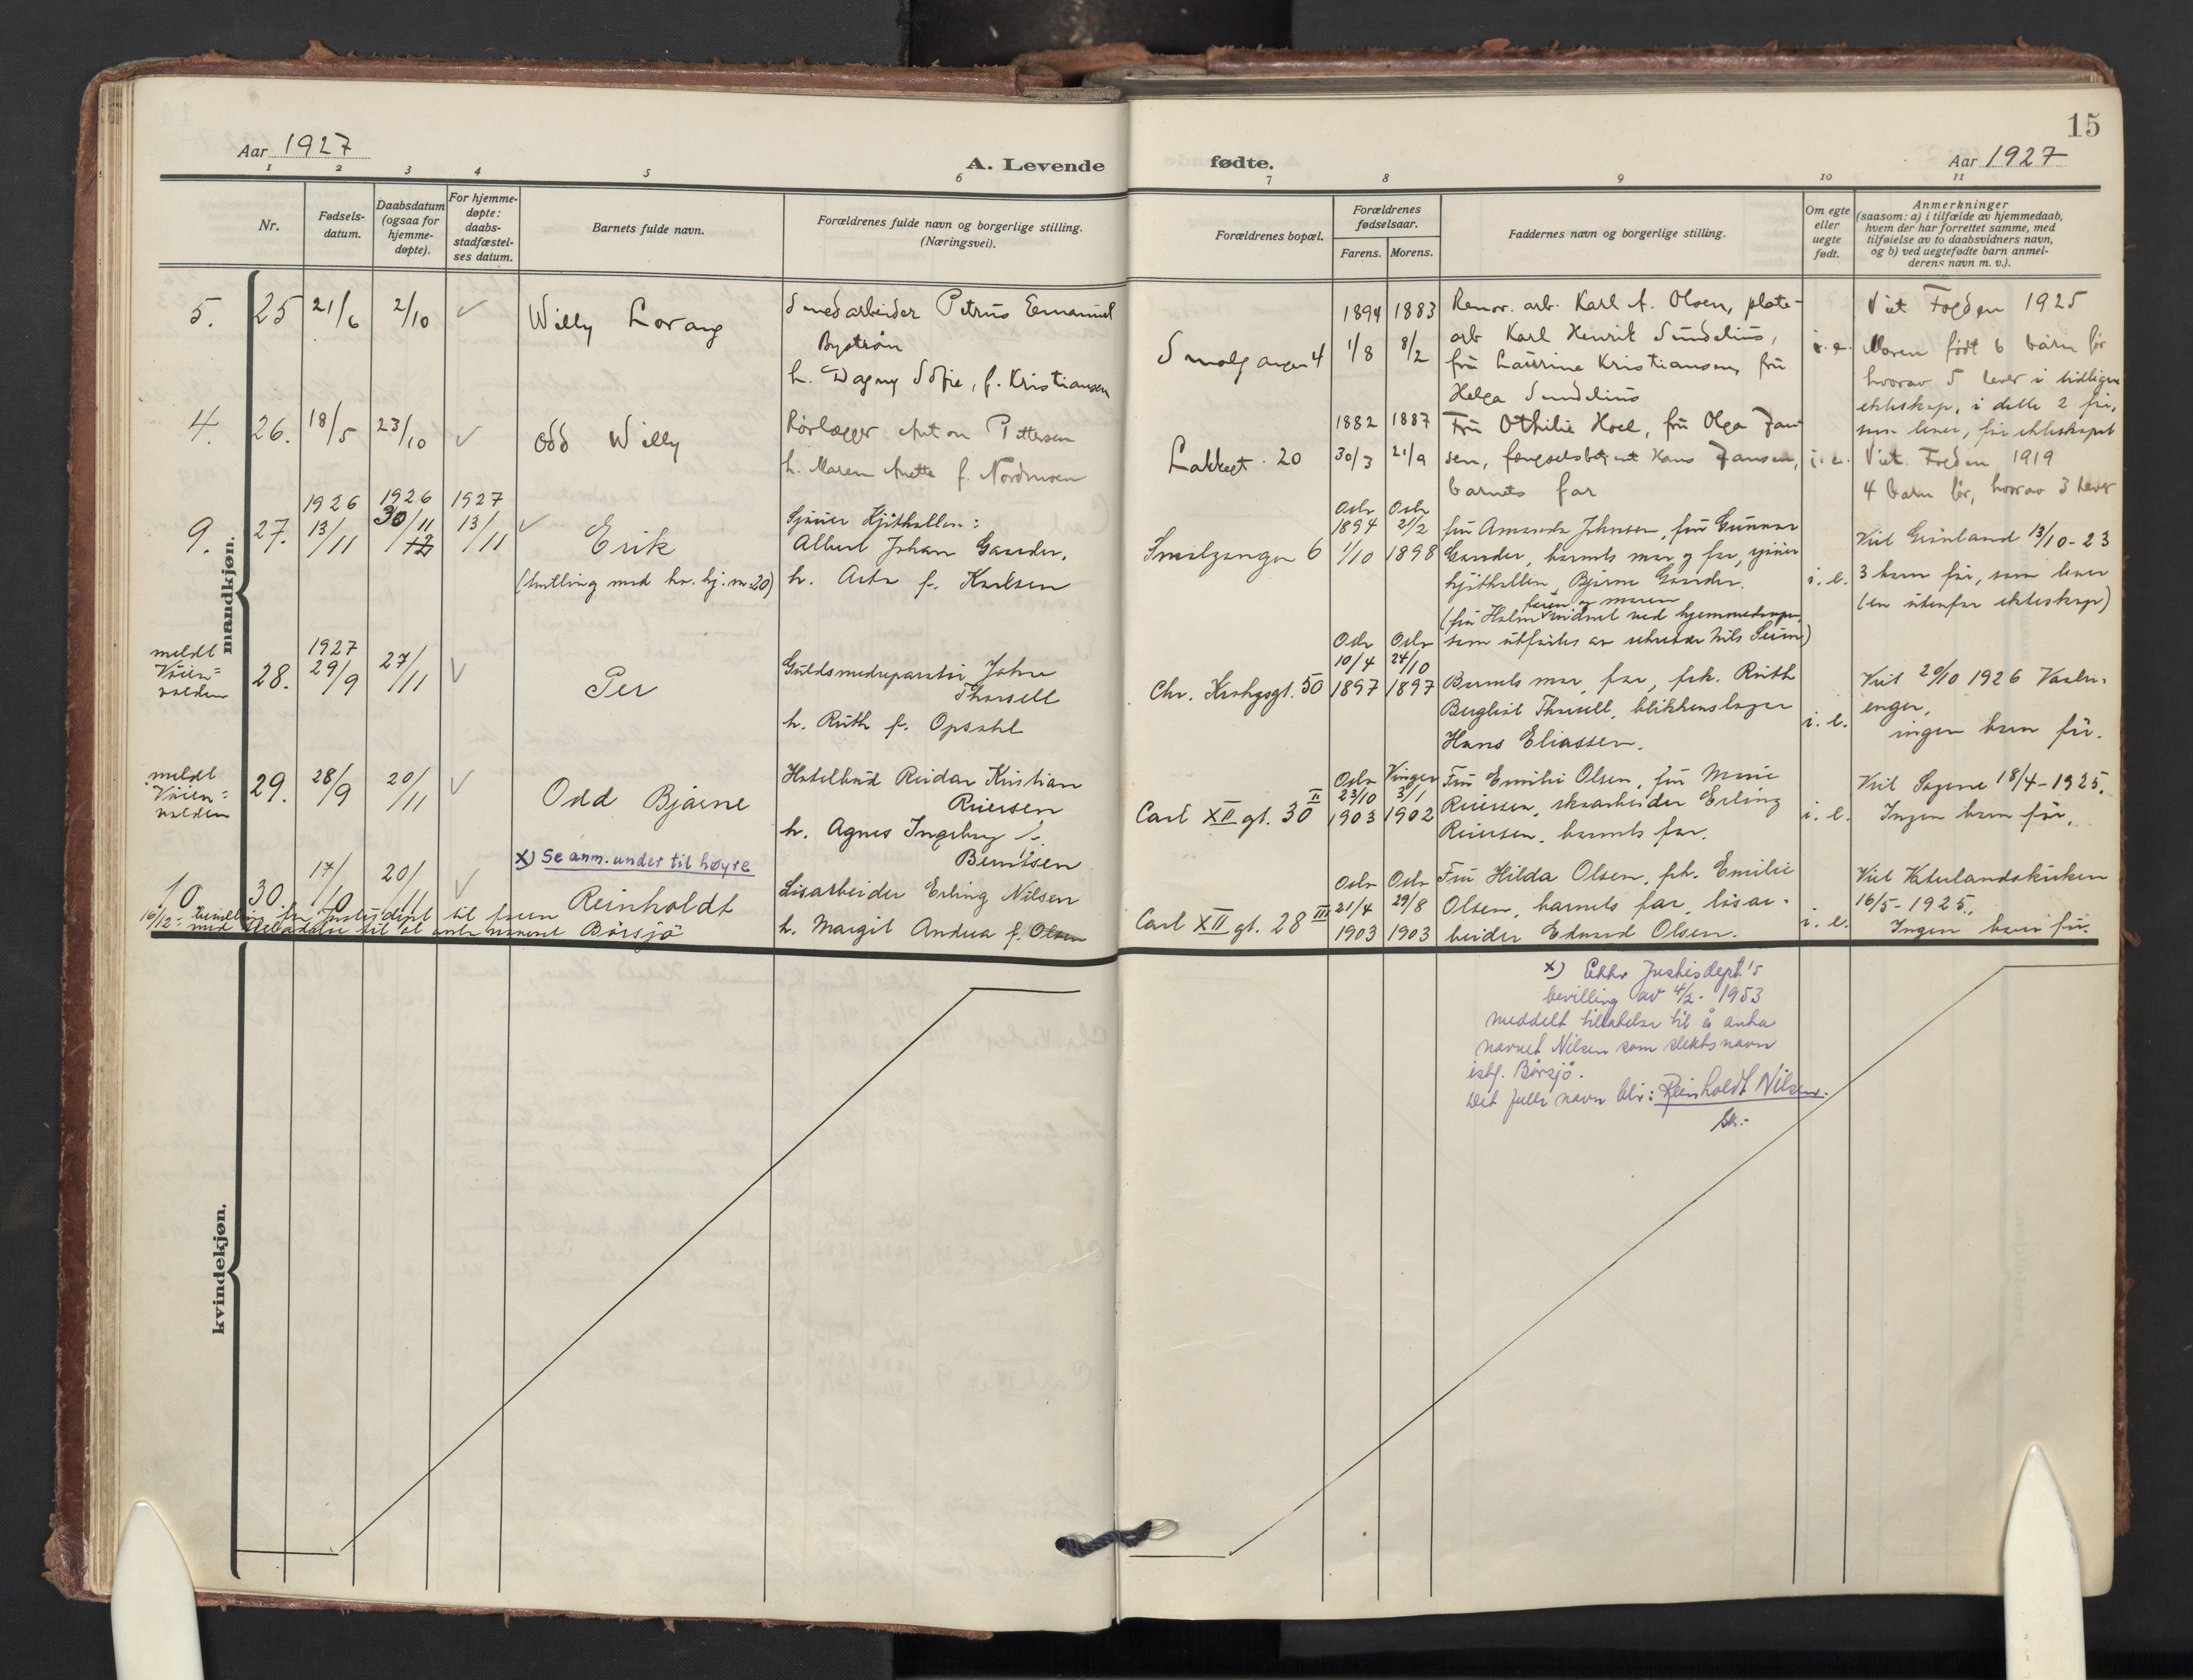 15
Aar 1927
A. Levende
fødte.
Aar 1927
1 2 3 4 5 6 7 8 9 10 11
Nr.
Fødsels-
datum.
Daabsdatum
(ogsaa for
hjemme-
døpte).
For hjemme-
døpte:
daabs-
stadfæstel-
ses datum.
Barnets fulde navn.
Forældrenes fulde navn og borgerlige stilling.
(Næringsvei).
Forældrenes bopæl.
Forældrenes
fødselsaar.
Farens. Morens.
Faddernes navn og borgerlige stilling.
Om egte
eller
uegte
født.
Anmerkninger
(saasom: a) i tilfælde av hjemmedaab,
hvem der har forrettet samme, med
tilføielse av to daabsvidners navn,
og b) ved uegtefødte barn anmel-
derens navn m. v.).
mandkjøn.
5. 25 21/6 2/10 ✓
Willy Lorang
Smedarbeider Petrus Emanuel
Byström
h. Dagny Sofie, f. Kristiansen
Smalgangen 4
1894 1883
1/8 8/2
Renov. arb. Karl A. Olsen, plate-
arb Karl Henrik Sundelius,
fru Laurine Kristiansen, fru
Helga Sundelius
i. e.
Viet Fogden 1925
Moren født 6 barn før
hvorav 5 lever i tidligere
ekteskap, i dette 2 før,
som lever, før ekteskapet
4. 26. 18/5 23/10 ✓
Odd Willy
Rørlægger Anton Pettersen
h. Maren Anette f. Nordmoen
Lakkegt. 20
1882 1887
30/3 21/9
Fru Othilie Hoel, fru Olga Jan-
sen, fængselsbetjent Hans Jansen,
barnets far
i. e.
Viet 1919
4 barn før, hvorav 3 lever
9. 27. 1926 13/11 1926 30/11 1927 13/11 ✓
Erik
(tvilling med nr. hj. nr. 20)
Sjauer Kjøthallen:
Albert Johan Gander,
h. Asta f. Karlsen
Smalgangen 6
Oslo Oslo
1894 21/2
1/10 1898
fru Amanda Johnsen, fru Gunnar
Gander, barnets mor og far, sjauer
kjøthallen, Bjarne Gander.
(fru Holm faren og moren vidnet ved hjemmedaapen
som utførtes av sekretær Nils Seim)
i. e.
Viet Grønland 13/10-23
3 barn før, som lever
(en utenfor ekteskap)
meldt
Vøien=
volden
28. 1927 29/9 27/11 ✓
Per
Guldsmedreparatør John
Thorsell
h. Ruth f. Opsahl
Chr. Krohgsgt. 50
Oslo Oslo
10/4 24/10
1897 1897
Barnets mor, far, frk. Ruth
Bergliot Thorsell, blikkenslager
Hans Eliassen.
i. e.
Viet 20/10 1926 Vaaler-
engen,
ingen barn før.
meldt
Vøien=
volden
29. 28/9 20/11 ✓
Odd Bjarne
Hotelbud Reidar Kristian
Reiersen
h. Agnes Ingeborg f.
Berntsen
Carl XII gt. 30 II
Oslo Vinger
23/10 3/1
1903 1902
Fru Emilie Olsen, fru Marie
Reiersen, skoarbeider Erling
Reiersen, barnets far.
i. e.
Viet Sagene 18/4-1925.
Ingen barn før.
x) Se anm. under til høyre
10 30. 17/10 20/11 ✓
Reinholdt
Løsarbeider Erling Nilsen
h. Margit Andrea f. Olsen
Carl XII gt. 28 III
Oslo Oslo
21/4 29/8
1903 1903
Fru Hilda Olsen, frk. Emilie
Olsen, barnets far, løsar-
beider Edvard Olsen.
i. e.
Viet Vaterlandskirken
16/5-1925.
Ingen barn før.
16/12: bevilling fra Justisdept til faren
med tilladelse til at anta navnet Börsjö
x) Ekkr Justisdept.'s
bevilling av 4/2.1953
meddelt tillatelse til å anta
navnet Nilsen som slektsnavn
istf. Börsjö.
Det fulle navn blir: Reinholdt Nilsen.
kvindekjøn.